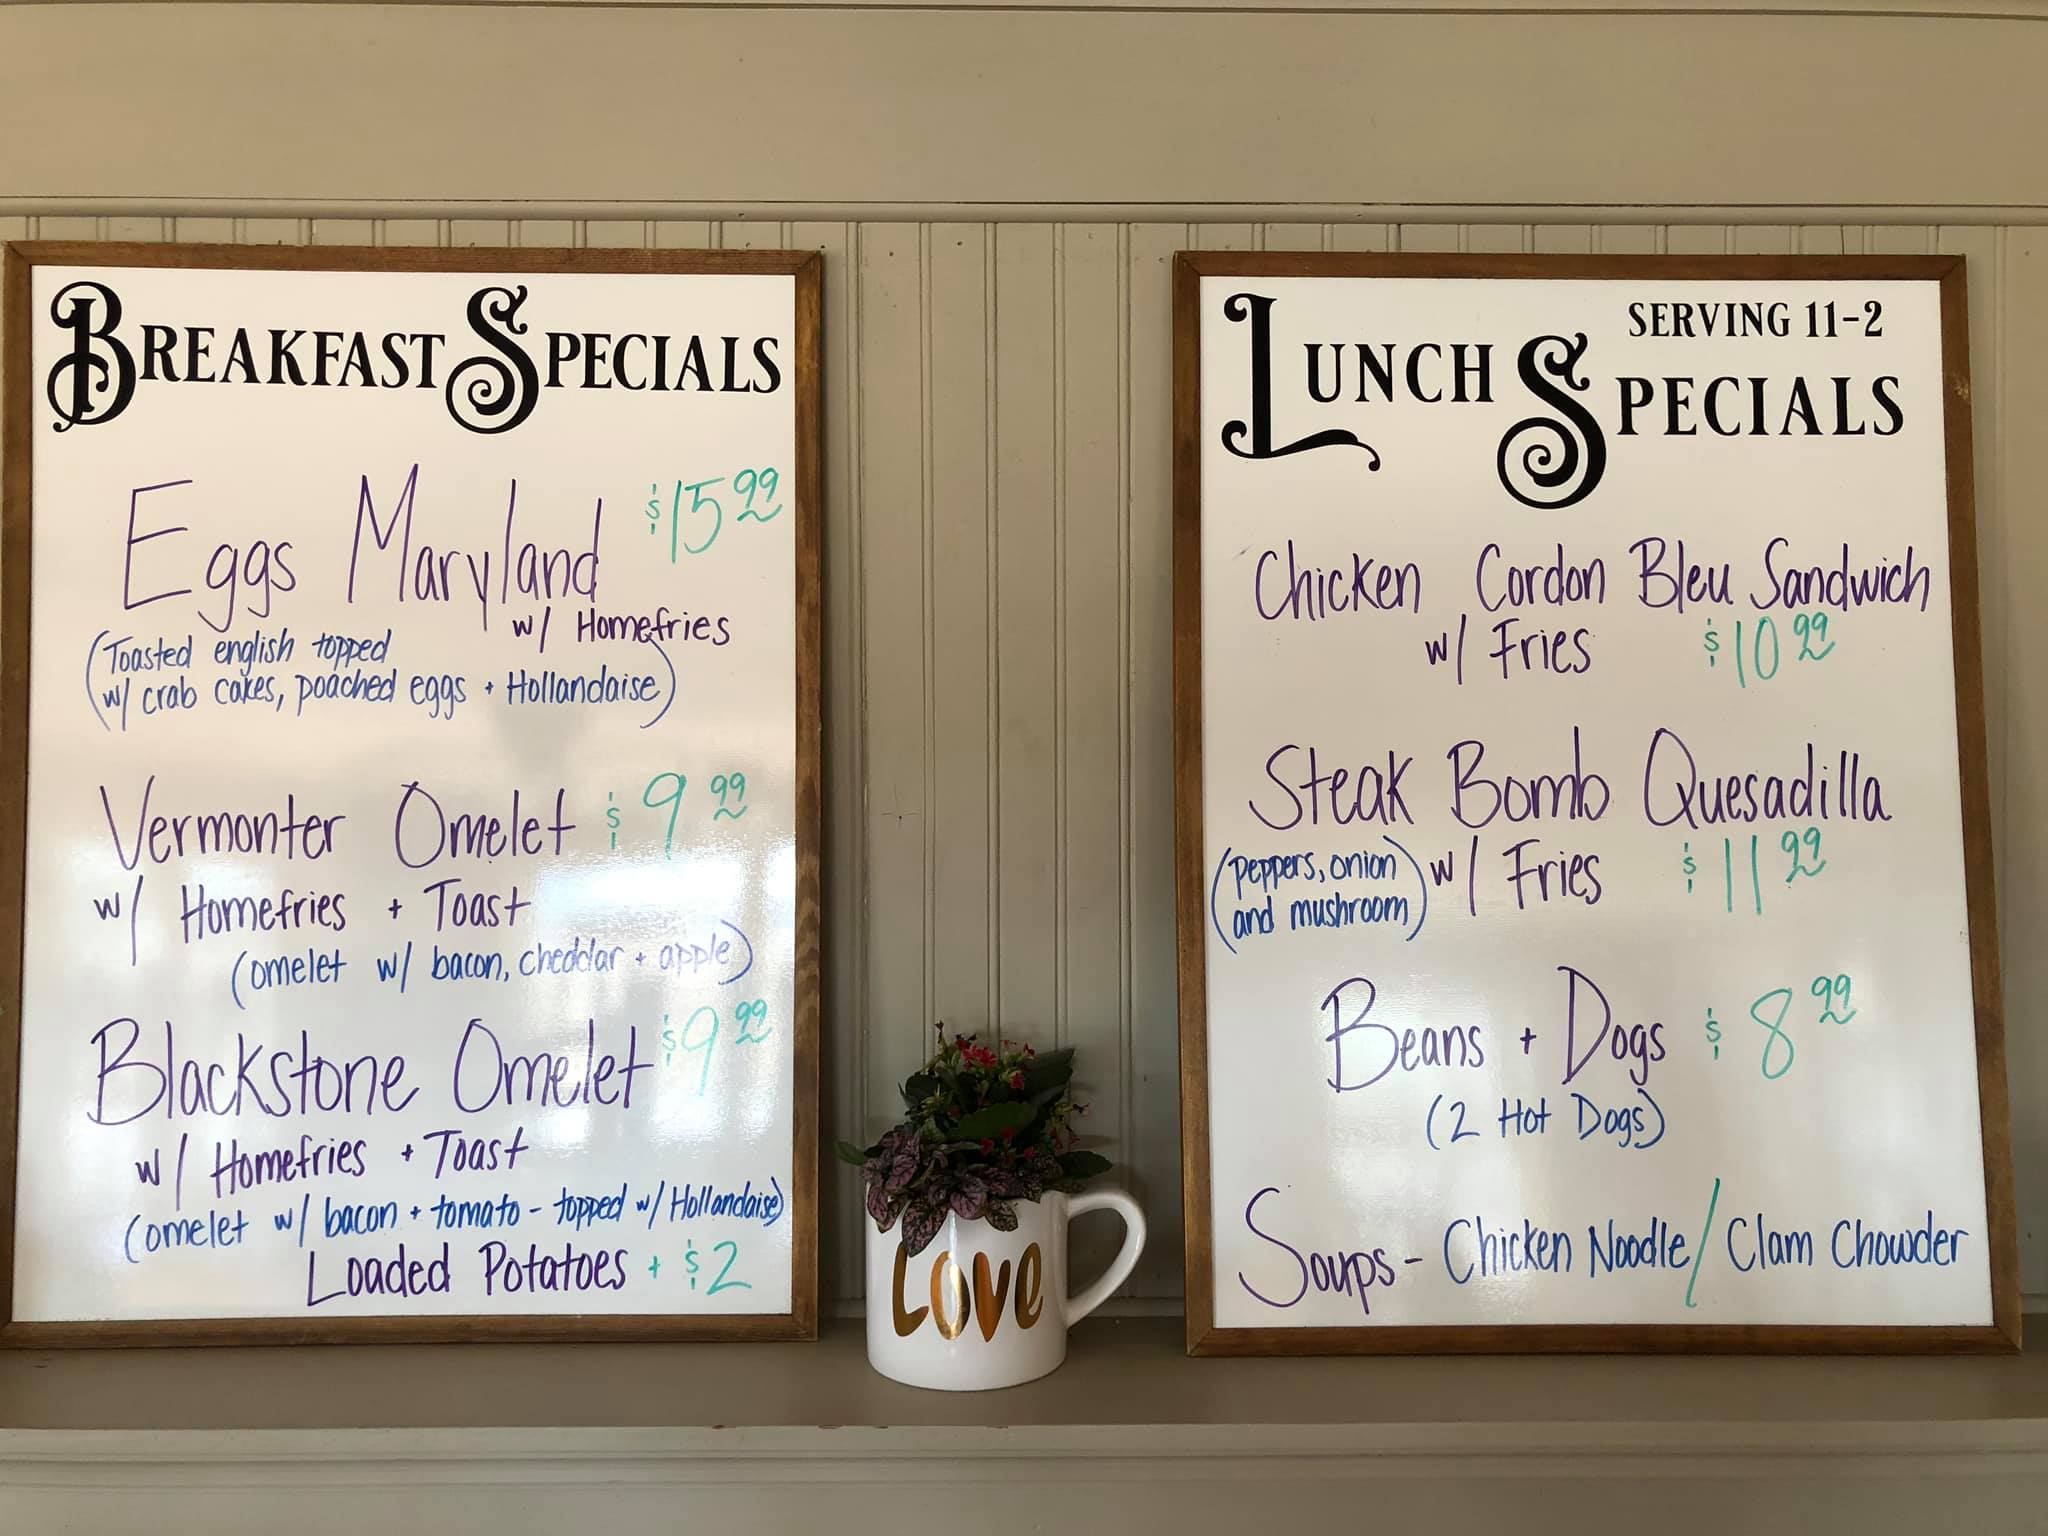 BREAKFAST SPECIALS
Eggs Maryland $15.99
w/ Homefries
(Toasted english topped
w/ crab cakes, poached eggs + Hollandaise)
Vermonter Omelet $9.99
w/ Homefries + Toast
(omelet w/ bacon, cheddar + apple)
Blackstone Omelet $9.99
w/ Homefries + Toast
(omelet w/ bacon + tomato - topped w/ Hollandaise)
Loaded Potatoes + $2
Love
SERVING 11-2
LUNCH SPECIALS
Chicken Cordon Bleu Sandwich
w/ Fries $10.99
Steak Bomb Quesadilla
(peppers, onion
and mushroom) w/ Fries $11.99
Beans + Dogs $8.99
(2 Hot Dogs)
Soups - Chicken Noodle / Clam Chowder